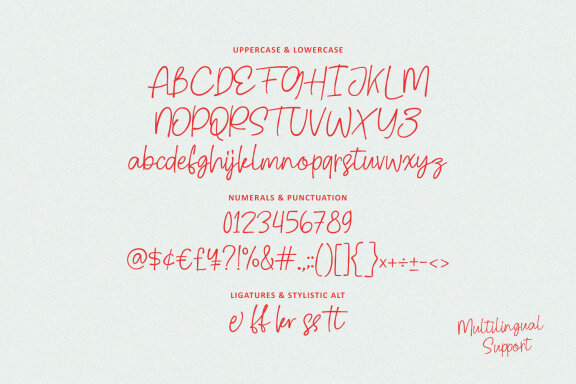 UPPERCASE & LOWERCASE
ABCDEFGHIJKLM
NOPQRSTUVWXYZ
abcdefghijklmnopqrstuvwxyz
NUMERALS & PUNCTUATION
0123456789
@$¢€£¥?!%&#.,;:()[]{}×+÷±-<>
LIGATURES & STYLISTIC ALT
e ff kr ss tt
Multilingual
Support